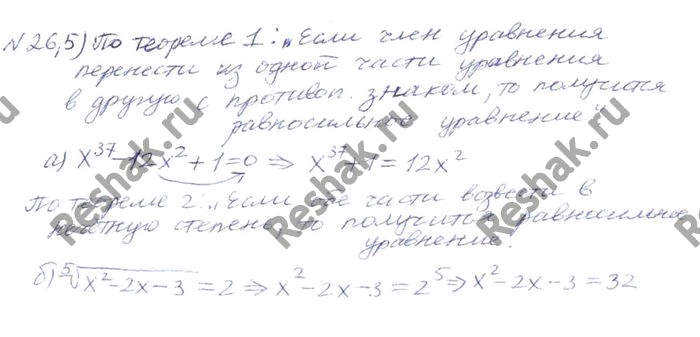 №26,5) По теореме 1: „Если член уравнения
перенести из одной части уравнения
в другую с противоп. знаком, то получится
равносильное уравнение“.
а) x³⁷-12x²+1=0 ⇒ x³⁷+1=12x²
По теореме 2: „Если обе части возвести в
нечетную степень, то получится равносильное
уравнение.“
б) ⁵√(x²-2x-3) = 2 ⇒ x²-2x-3 = 2⁵ ⇒ x²-2x-3 = 32
Reshak.ru
Reshak.ru
Reshak.ru
Reshak.ru
Reshak.ru